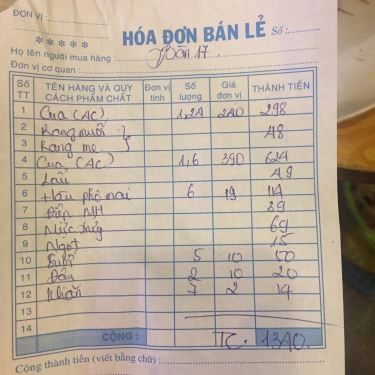 ĐƠN VỊ
*****
HÓA ĐƠN BÁN LẺ Số:
Họ tên người mua hàng: Bàn 17
Đơn vị cơ quan:
Số TT TÊN HÀNG VÀ QUY CÁCH PHẨM CHẤT Đơn vị tính Số lượng Giá đơn vị THÀNH TIỀN
1 Cua (AC) 1,24 240 298
2 Rang muối 48
3 Rang me
4 Cua (AC) 1,6 390 624
5 Lẩu 49
6 Hàu phô mai 6 19 114
7 NH 29
8 Mực 69
9 Ngọt 15
10 5 10 50
11 Đậu 2 10 20
12 Khăn 7 2 14
13
14
CỘNG: TC. 1340.
Cộng thành tiền (viết bằng chữ):